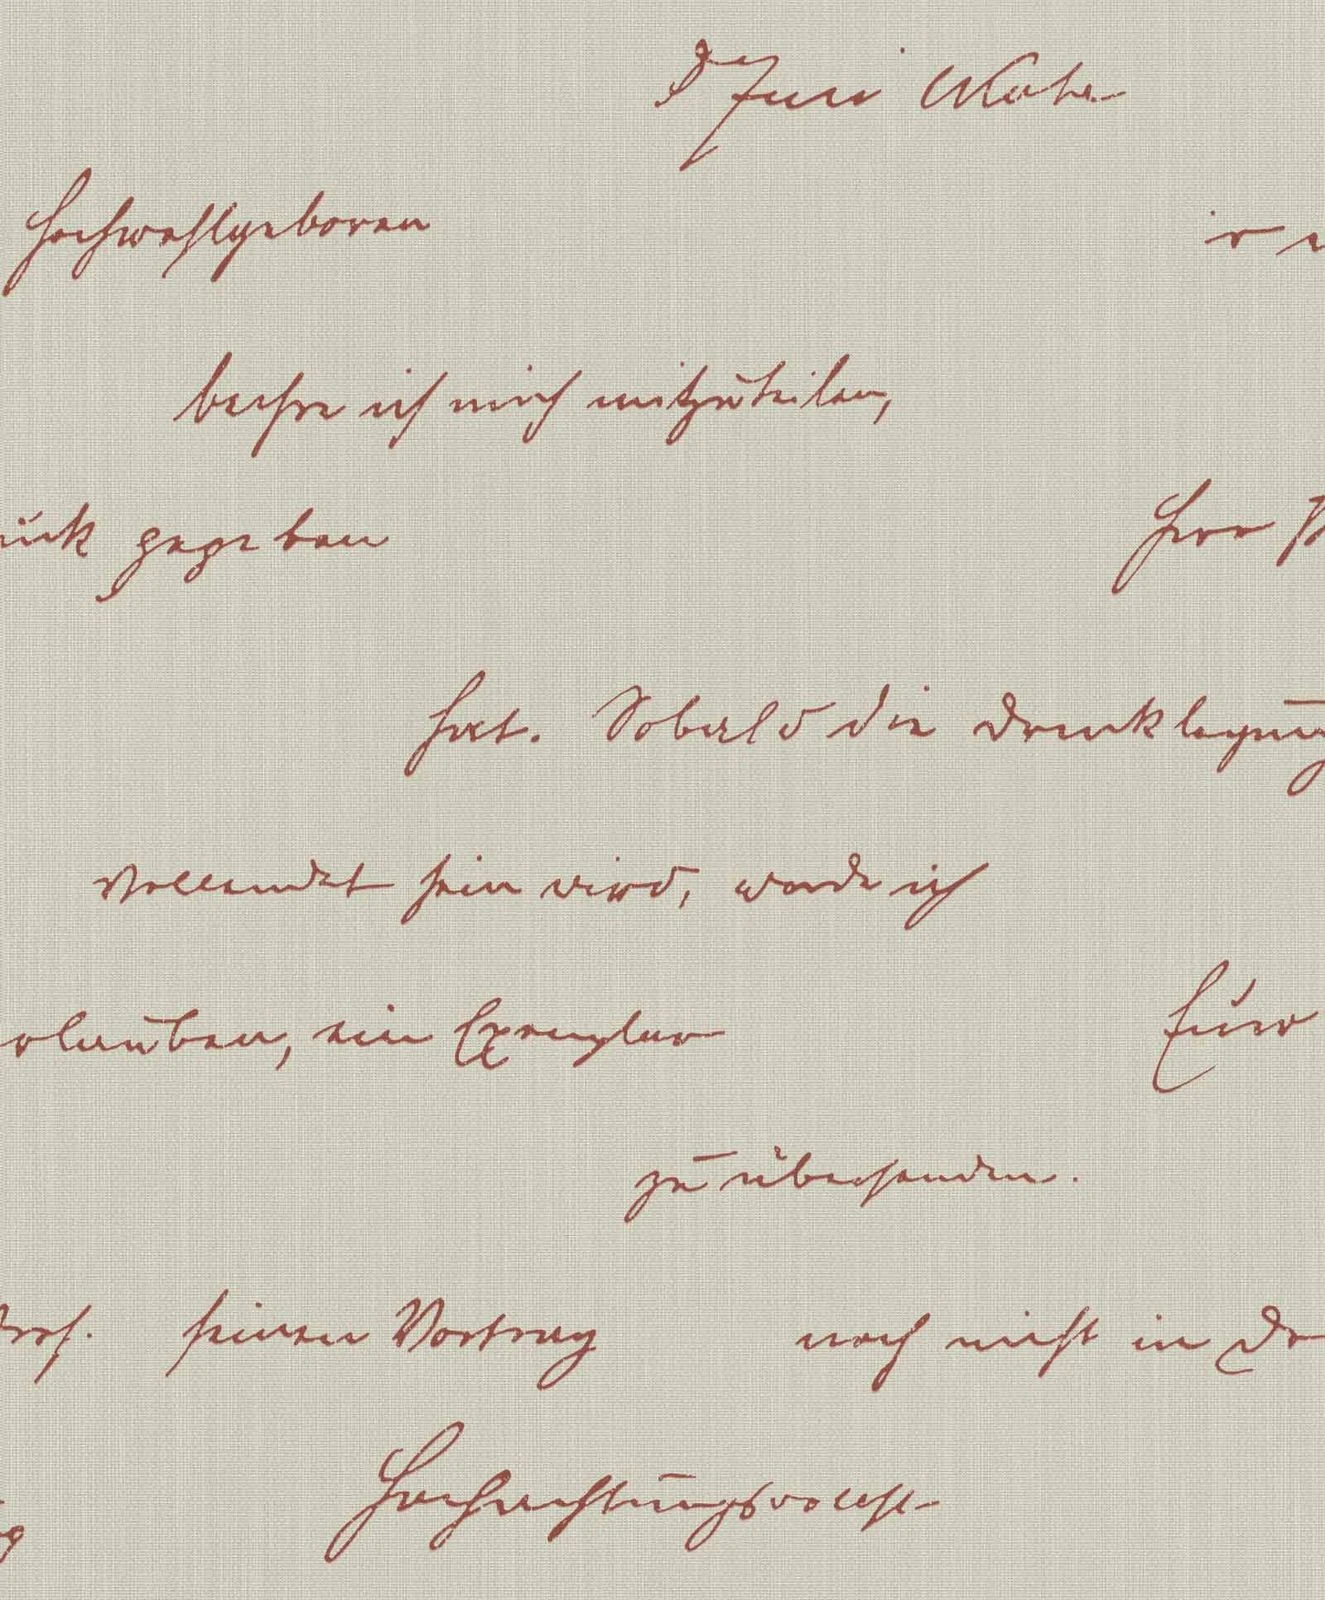 Hochwohlgeboren
beehre ich mich mitzuteilen,
ück gegeben Herr P
hat. Sobald die Drucklegung
vollendet sein wird, werde ich
erlauben, ein Exemplar Euer
zu übersenden.
Prof. seinen Vortrag noch nicht in Dr
Hochachtungsvollst